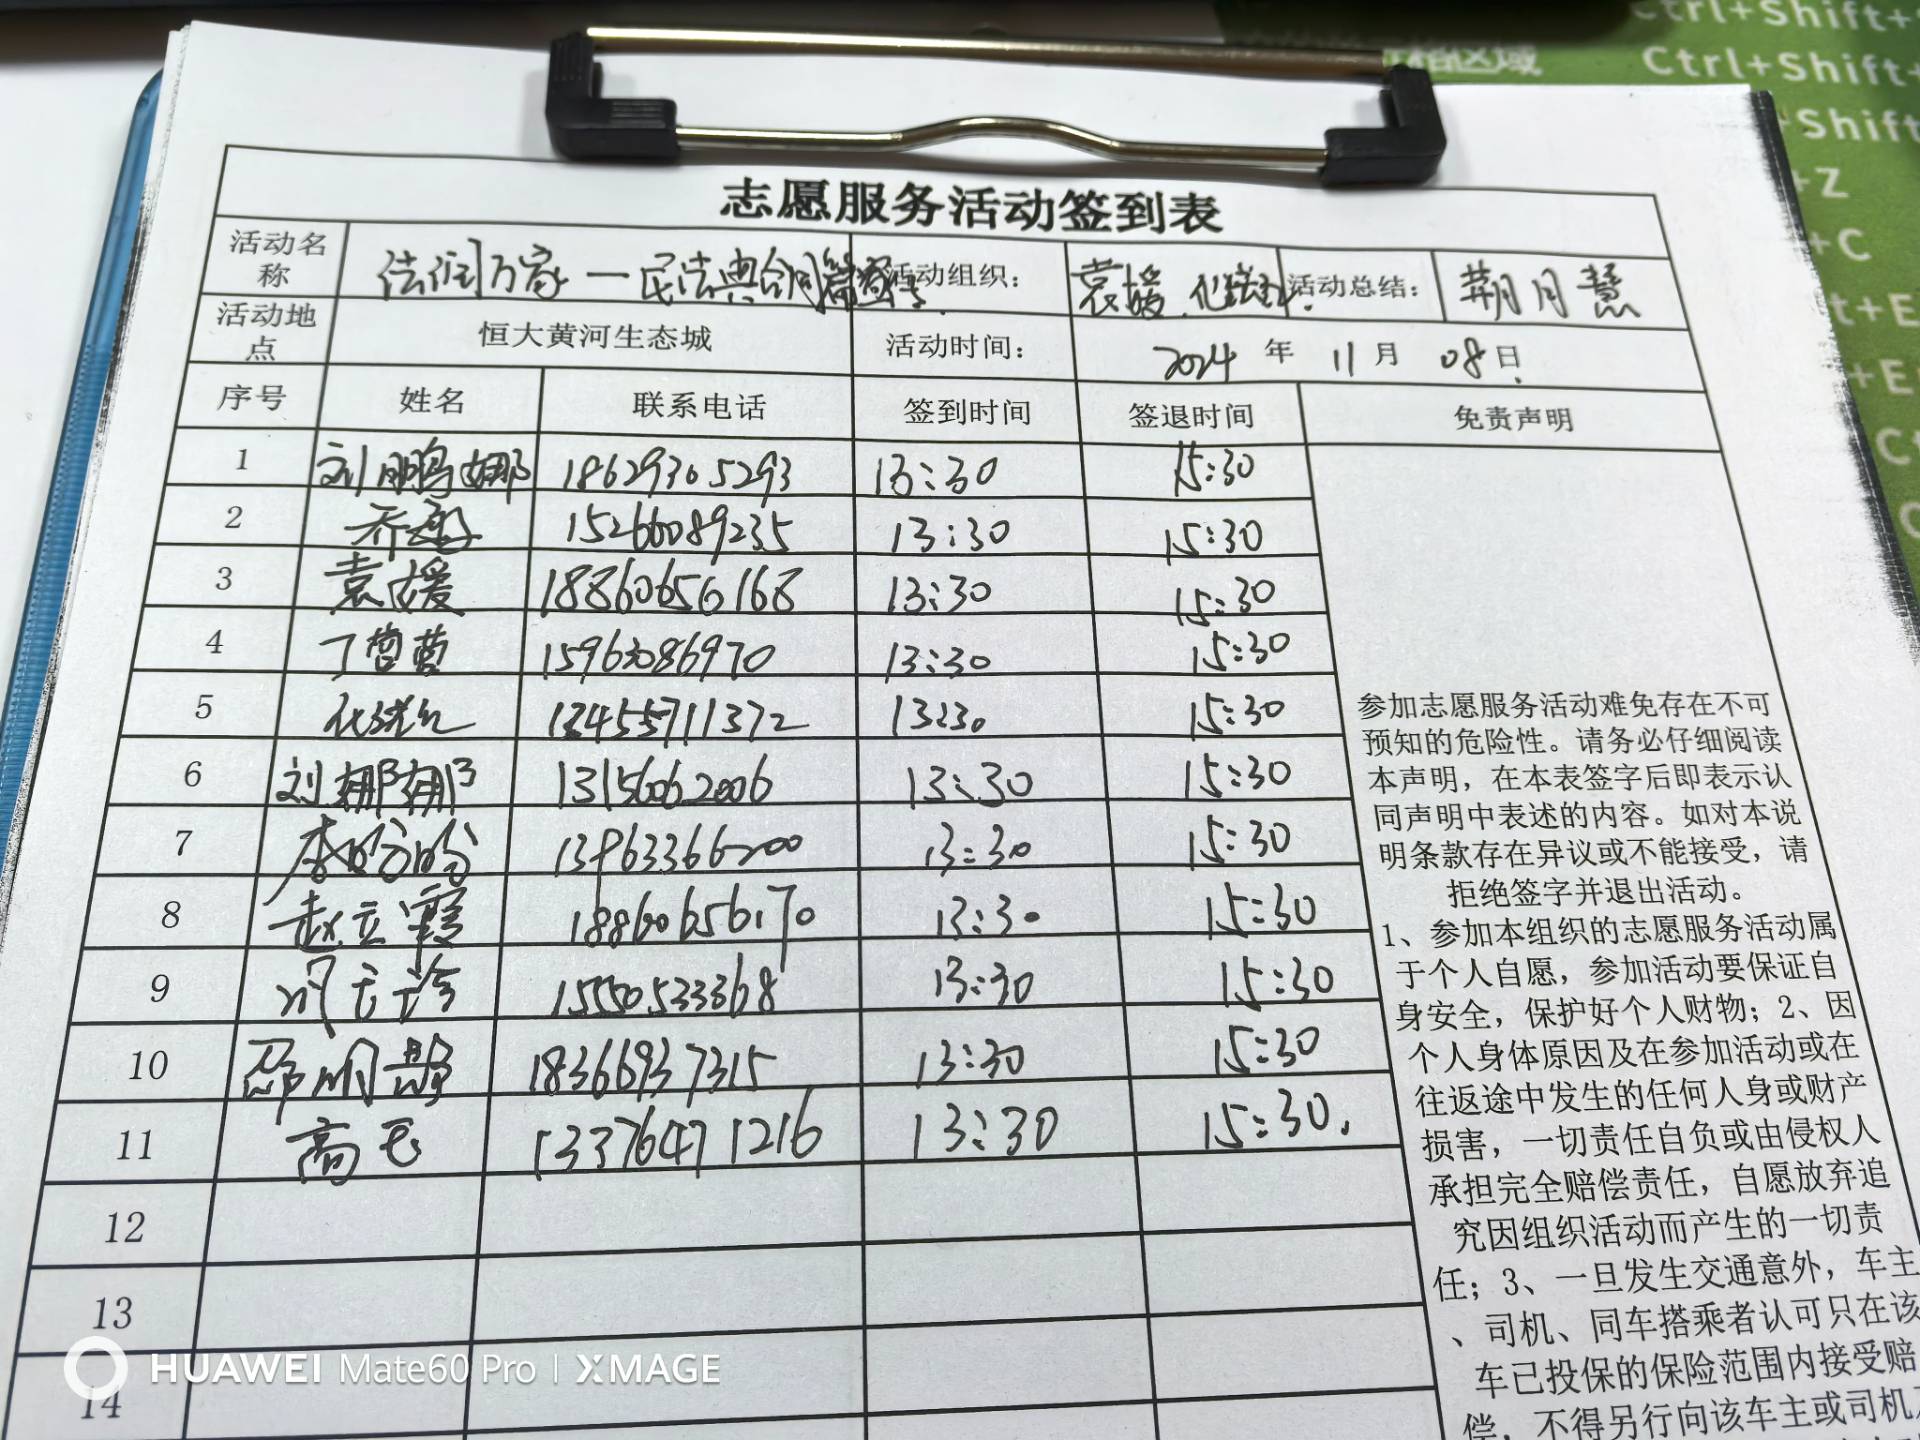 Ctrl+Shift+
格区域 Ctrl+Shift+
+Shift
+Z
+C
志愿服务活动签到表
活动名称 法润万家一民法典合同篇 活动组织: 袁媛 活动总结: 月慧
活动地点 恒大黄河生态城 活动时间: 2024 年 11 月 08 日
序号 姓名 联系电话 签到时间 签退时间 免责声明
1 刘鹏娜 18629305293 13:30 15:30
2 乔 15266089235 13:30 15:30
3 袁媛 18860656168 13:30 15:30
4 丁 15963086970 13:30 15:30
5 13455711372 13:30 15:30
6 刘娜娜 13156062006 13:30 15:30
7 李盼盼 13963366200 13:30 15:30
8 赵立霞 18860656170 13:30 15:30
9 15550533368 13:30 15:30
10 邵明 18366937315 13:30 15:30
11 高飞 13376471216 13:30 15:30.
12
13
14
参加志愿服务活动难免存在不可
预知的危险性。请务必仔细阅读
本声明，在本表签字后即表示认
同声明中表述的内容。如对本说
明条款存在异议或不能接受，请
拒绝签字并退出活动。
1、参加本组织的志愿服务活动属
于个人自愿，参加活动要保证自
身安全，保护好个人财物；2、因
个人身体原因及在参加活动或在
往返途中发生的任何人身或财产
损害，一切责任自负或由侵权人
承担完全赔偿责任，自愿放弃追
究因组织活动而产生的一切责
任；3、一旦发生交通意外，车主
、司机、同车搭乘者认可只在该
车已投保的保险范围内接受赔
偿，不得另行向该车主或司机
HUAWEI Mate60 Pro | XMAGE